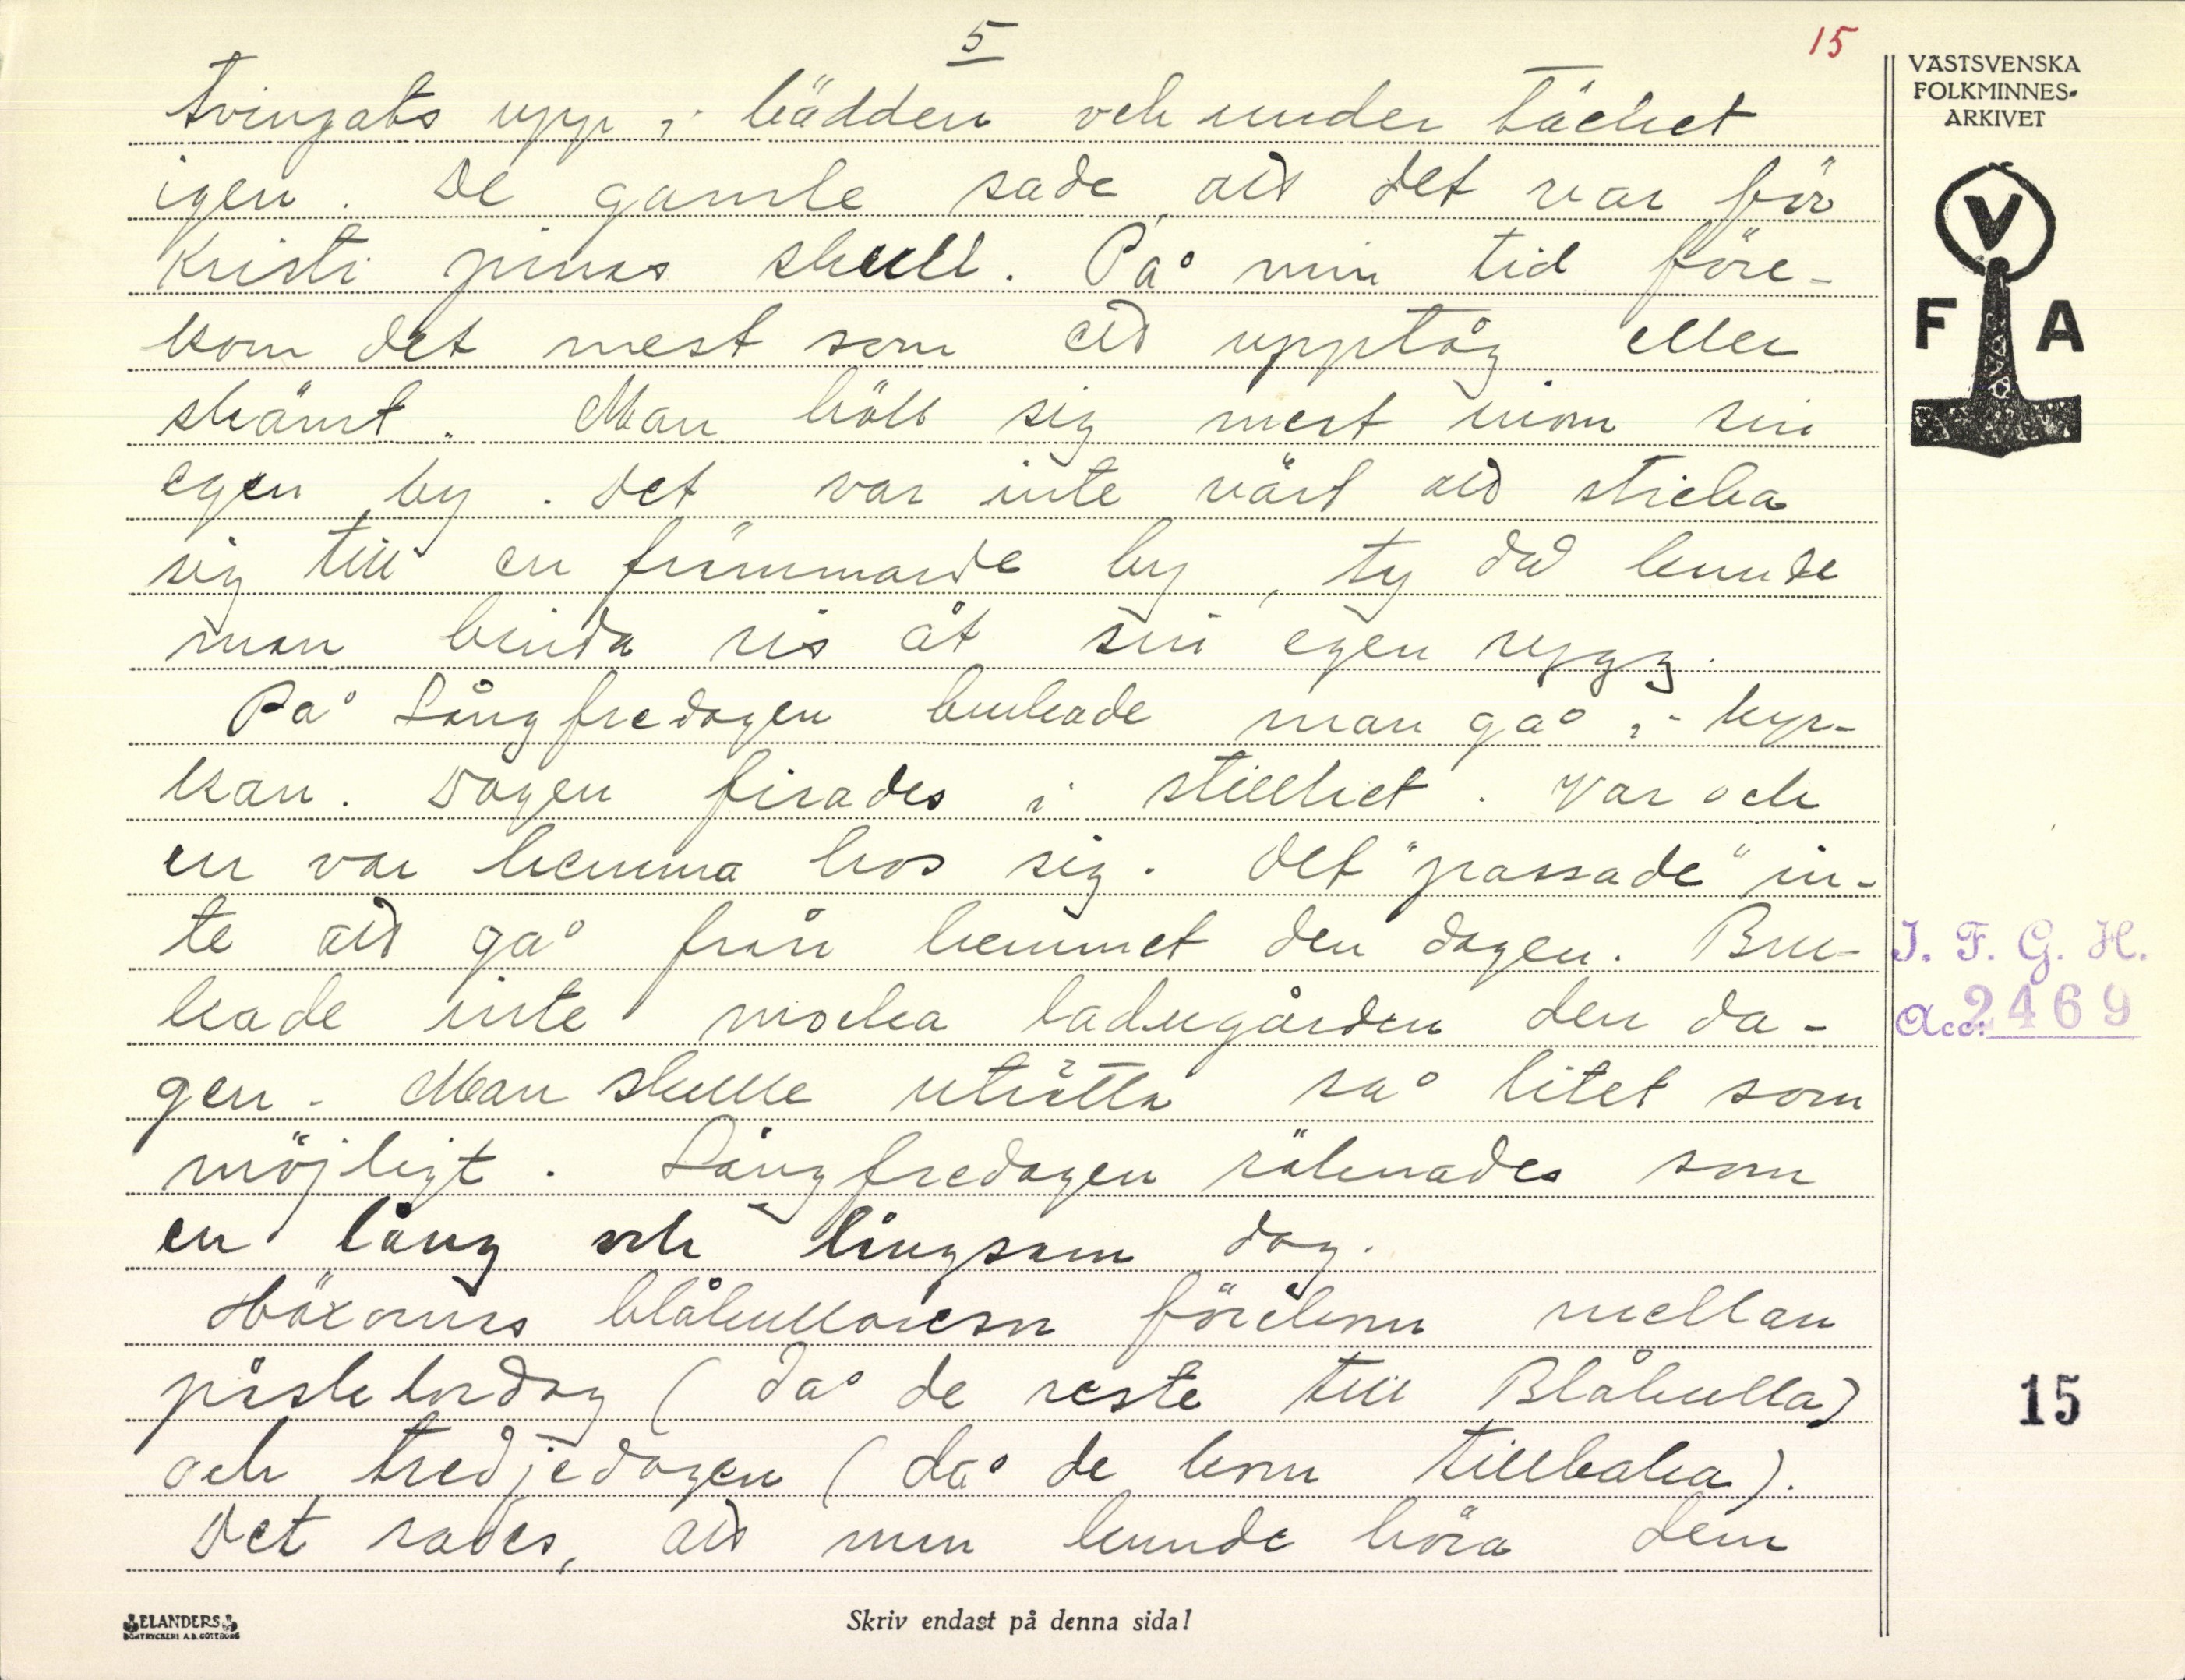 5
15
tvingats upp i bädden och under täcket
igen. De gamle sade, att det var för
Kristi pinas skull. På min tid före-
kom det mest som ett upptåg eller
skämt. Man höll sig mest inom sin
egen by. Det var inte värt att sticka
sig till en främmande by, ty då kunde
man binda ris åt sin egen rygg.
På Långfredagen brukade man gå i kyr-
kan. Dagen firades i stillhet. Var och
en var hemma hos sig. Det "passade" in-
te att gå från hemmet den dagen. Bru-
kade inte mocka ladugården den da-
gen. Man skulle uträtta så litet som
möjligt. Långfredagen räknades som
en lång och långsam dag.
Häxornas blåkullaresor förekom mellan
påskelördag (då de reste till Blåkulla)
och tredjedagen (då de kom tillbaka).
Det sades, att man kunde höra dem
VÄSTSVENSKA
FOLKMINNES-
ARKIVET
V
F A
I. F. G. H.
Acc. 2469
15
ELANDERS
BOKTRYCKERI A.B. GÖTEBORG
Skriv endast på denna sida!